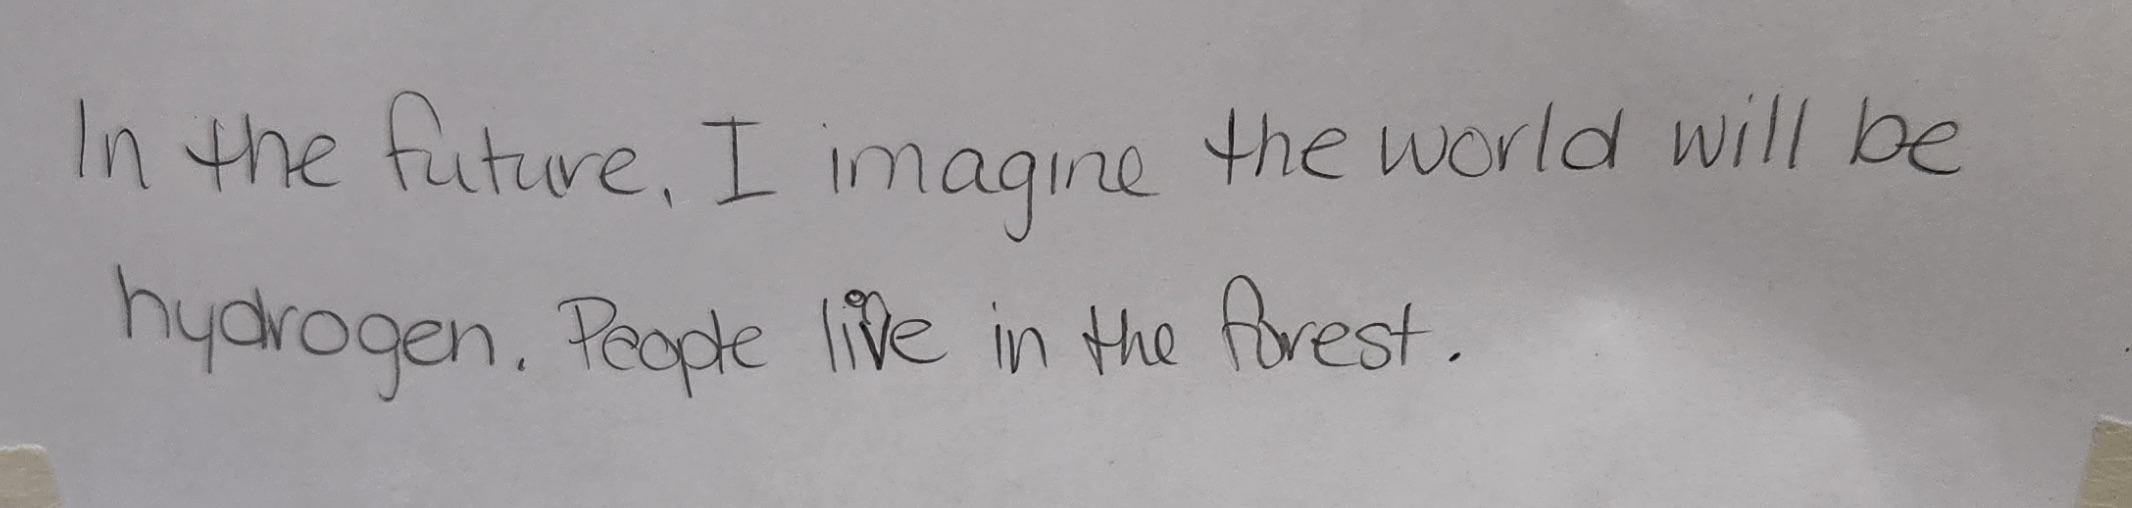 In the future, I imagine the world will be
hydrogen. People live in the forest.